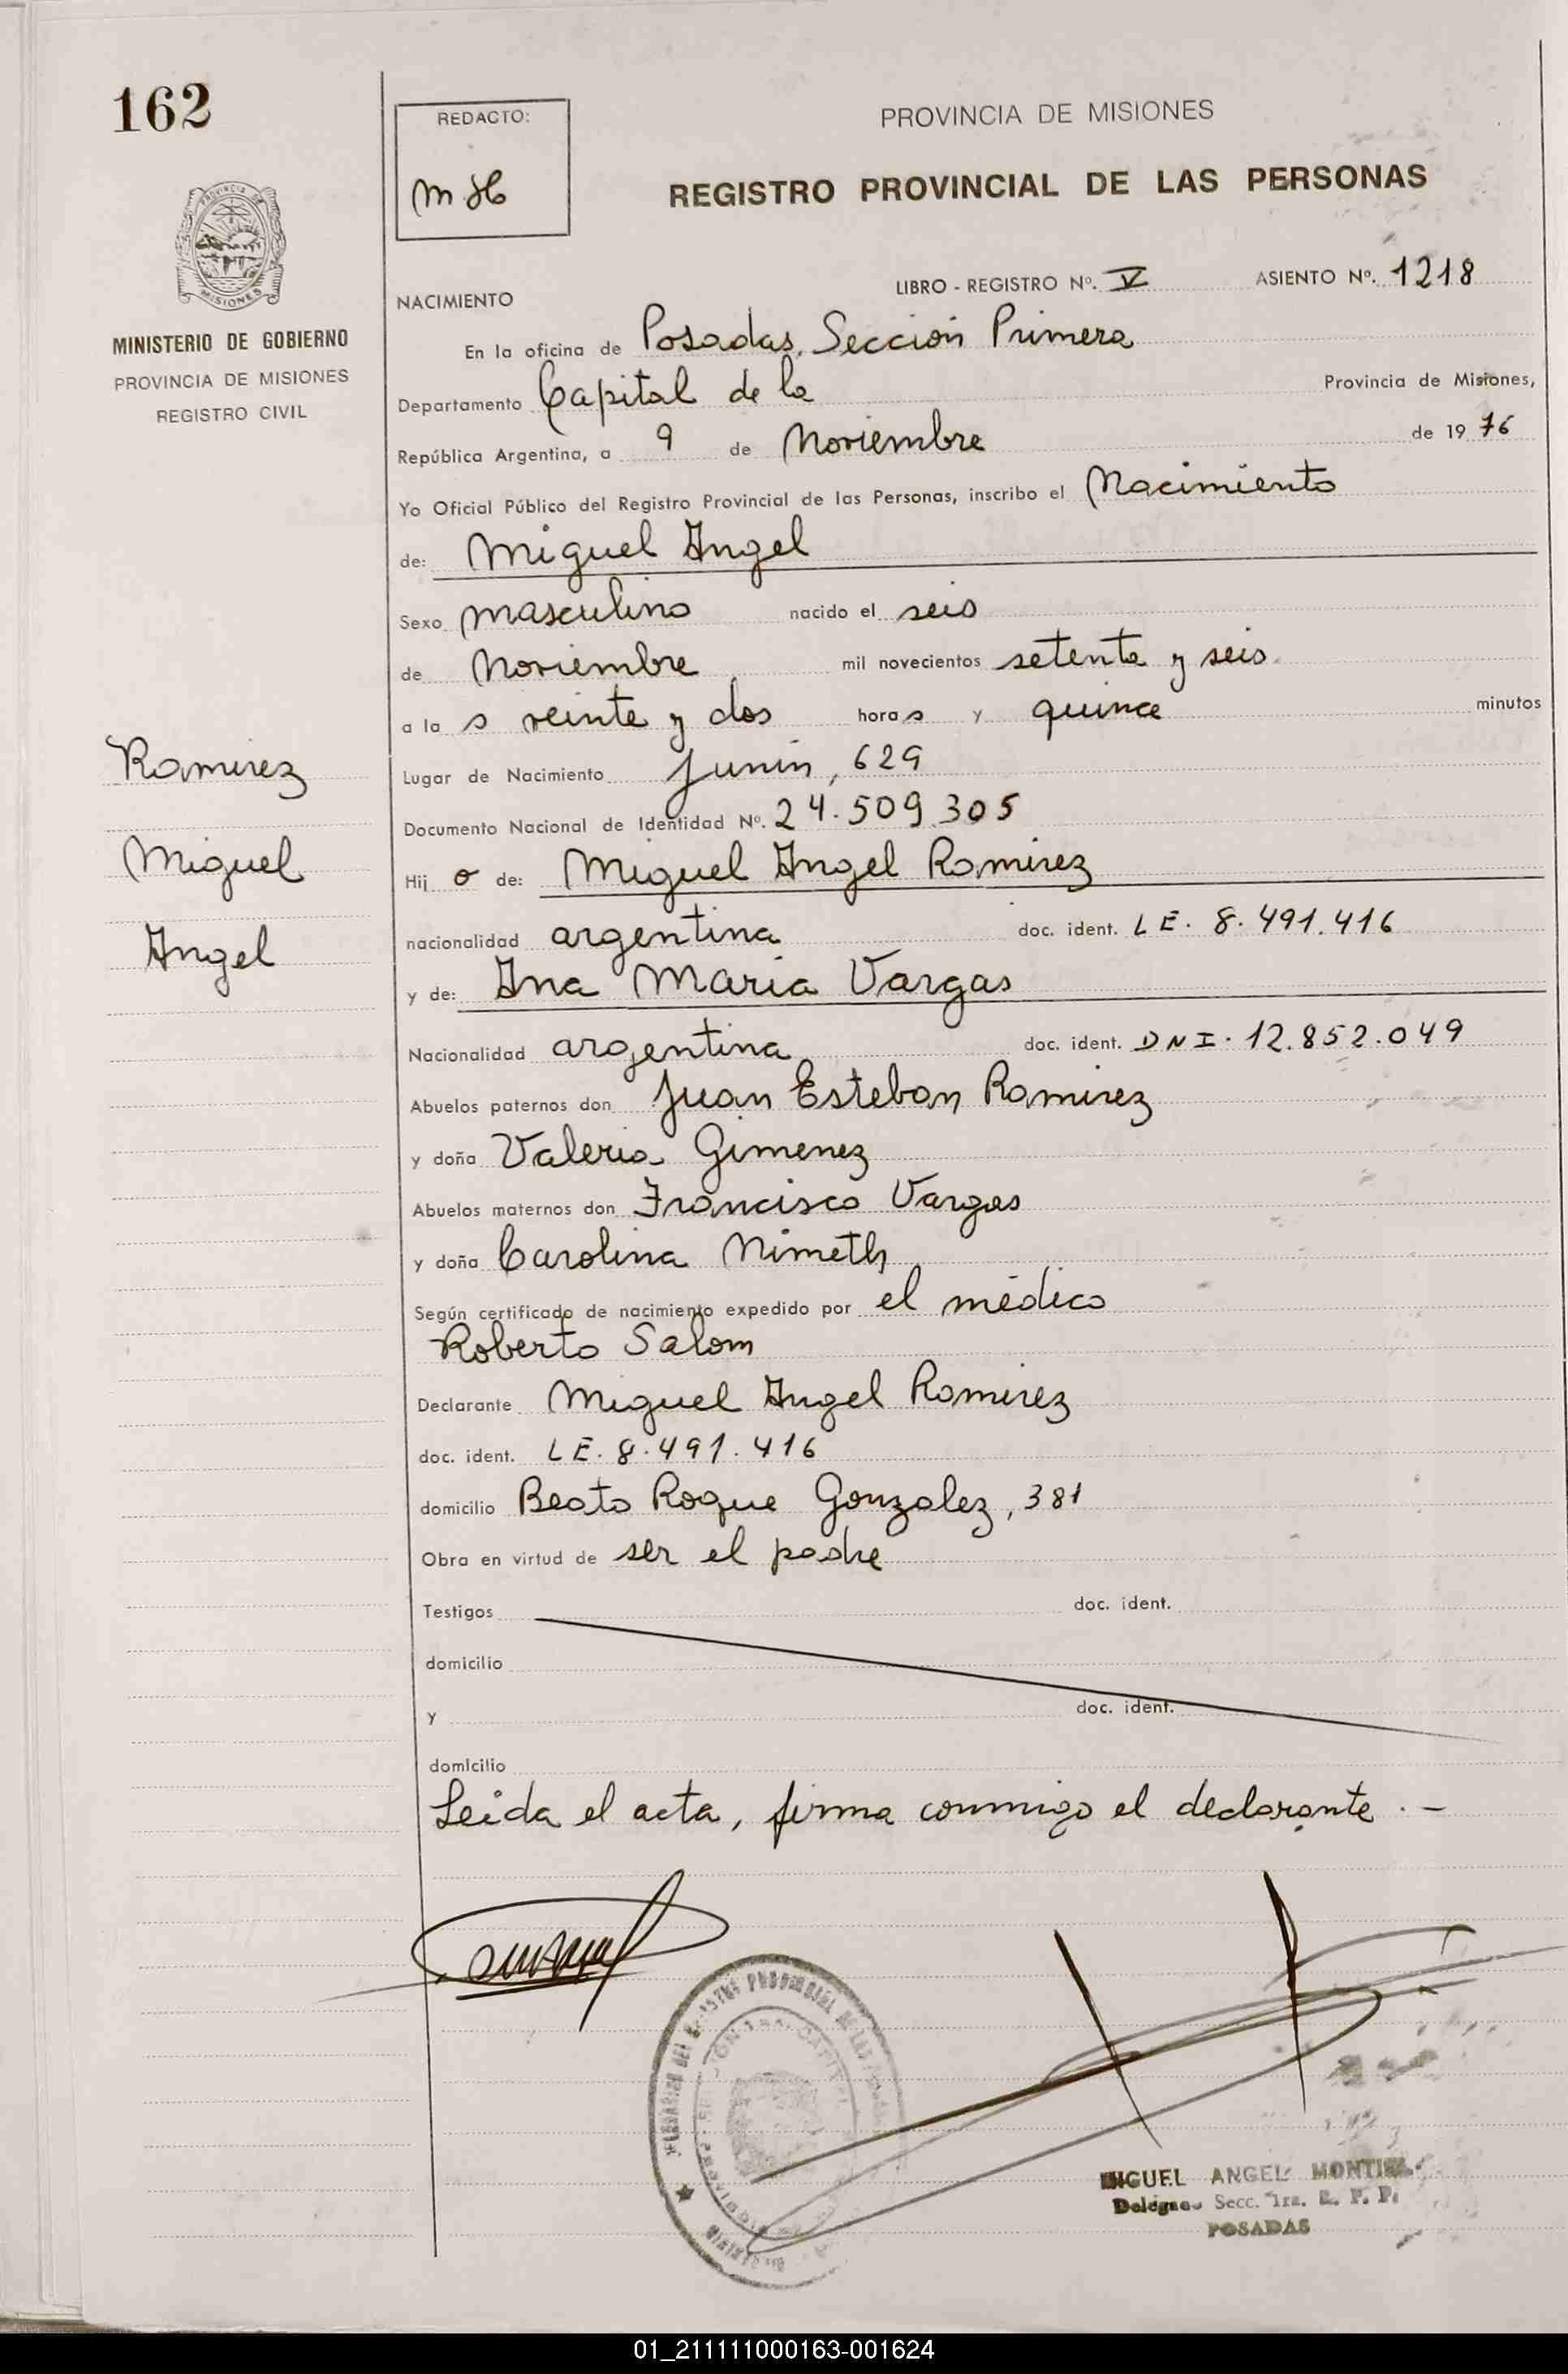 162
REDACTO:
M H
PROVINCIA DE MISIONES
REGISTRO PROVINCIAL DE LAS PERSONAS
PROVINCIA DE
MISIONES
MINISTERIO DE GOBIERNO
PROVINCIA DE MISIONES
REGISTRO CIVIL
LIBRO - REGISTRO Nº. V ASIENTO Nº. 1218
NACIMIENTO
En la oficina de Posadas, Sección Primera
Departamento Capital de la Provincia de Misiones,
República Argentina, a 9 de Noviembre de 1976
Yo Oficial Público del Registro Provincial de las Personas, inscribo el Nacimiento
de: Miguel Angel
Sexo masculino nacido el seis
de Noviembre mil novecientos setenta y seis
a la s veinte y dos horas y quince minutos
Lugar de Nacimiento Junin, 629
Documento Nacional de Identidad Nº. 24.509.305
Hij o de: Miguel Angel Ramirez
nacionalidad argentina doc. ident. LE. 8.491.416
y de: Ana Maria Vargas
Nacionalidad argentina doc. ident. DNI. 12.852.049
Abuelos paternos don Juan Esteban Ramirez
y doña Valeria Gimenez
Abuelos maternos don Francisco Vargas
y doña Carolina Nimeth
Según certificado de nacimiento expedido por el médico
Roberto Salom
Declarante Miguel Angel Ramirez
doc. ident. LE. 8.491.416
domicilio Beato Roque Gonzalez, 381
Obra en virtud de ser el padre
Testigos doc. ident.
domicilio
y doc. ident.
domicilio
Leida el acta, firma conmigo el declarante . -
Ramirez
Miguel
Angel
MIGUEL ANGEL MONTIEL
Delegado Secc. 1ra. R. P. P.
POSADAS
01_211111000163-001624